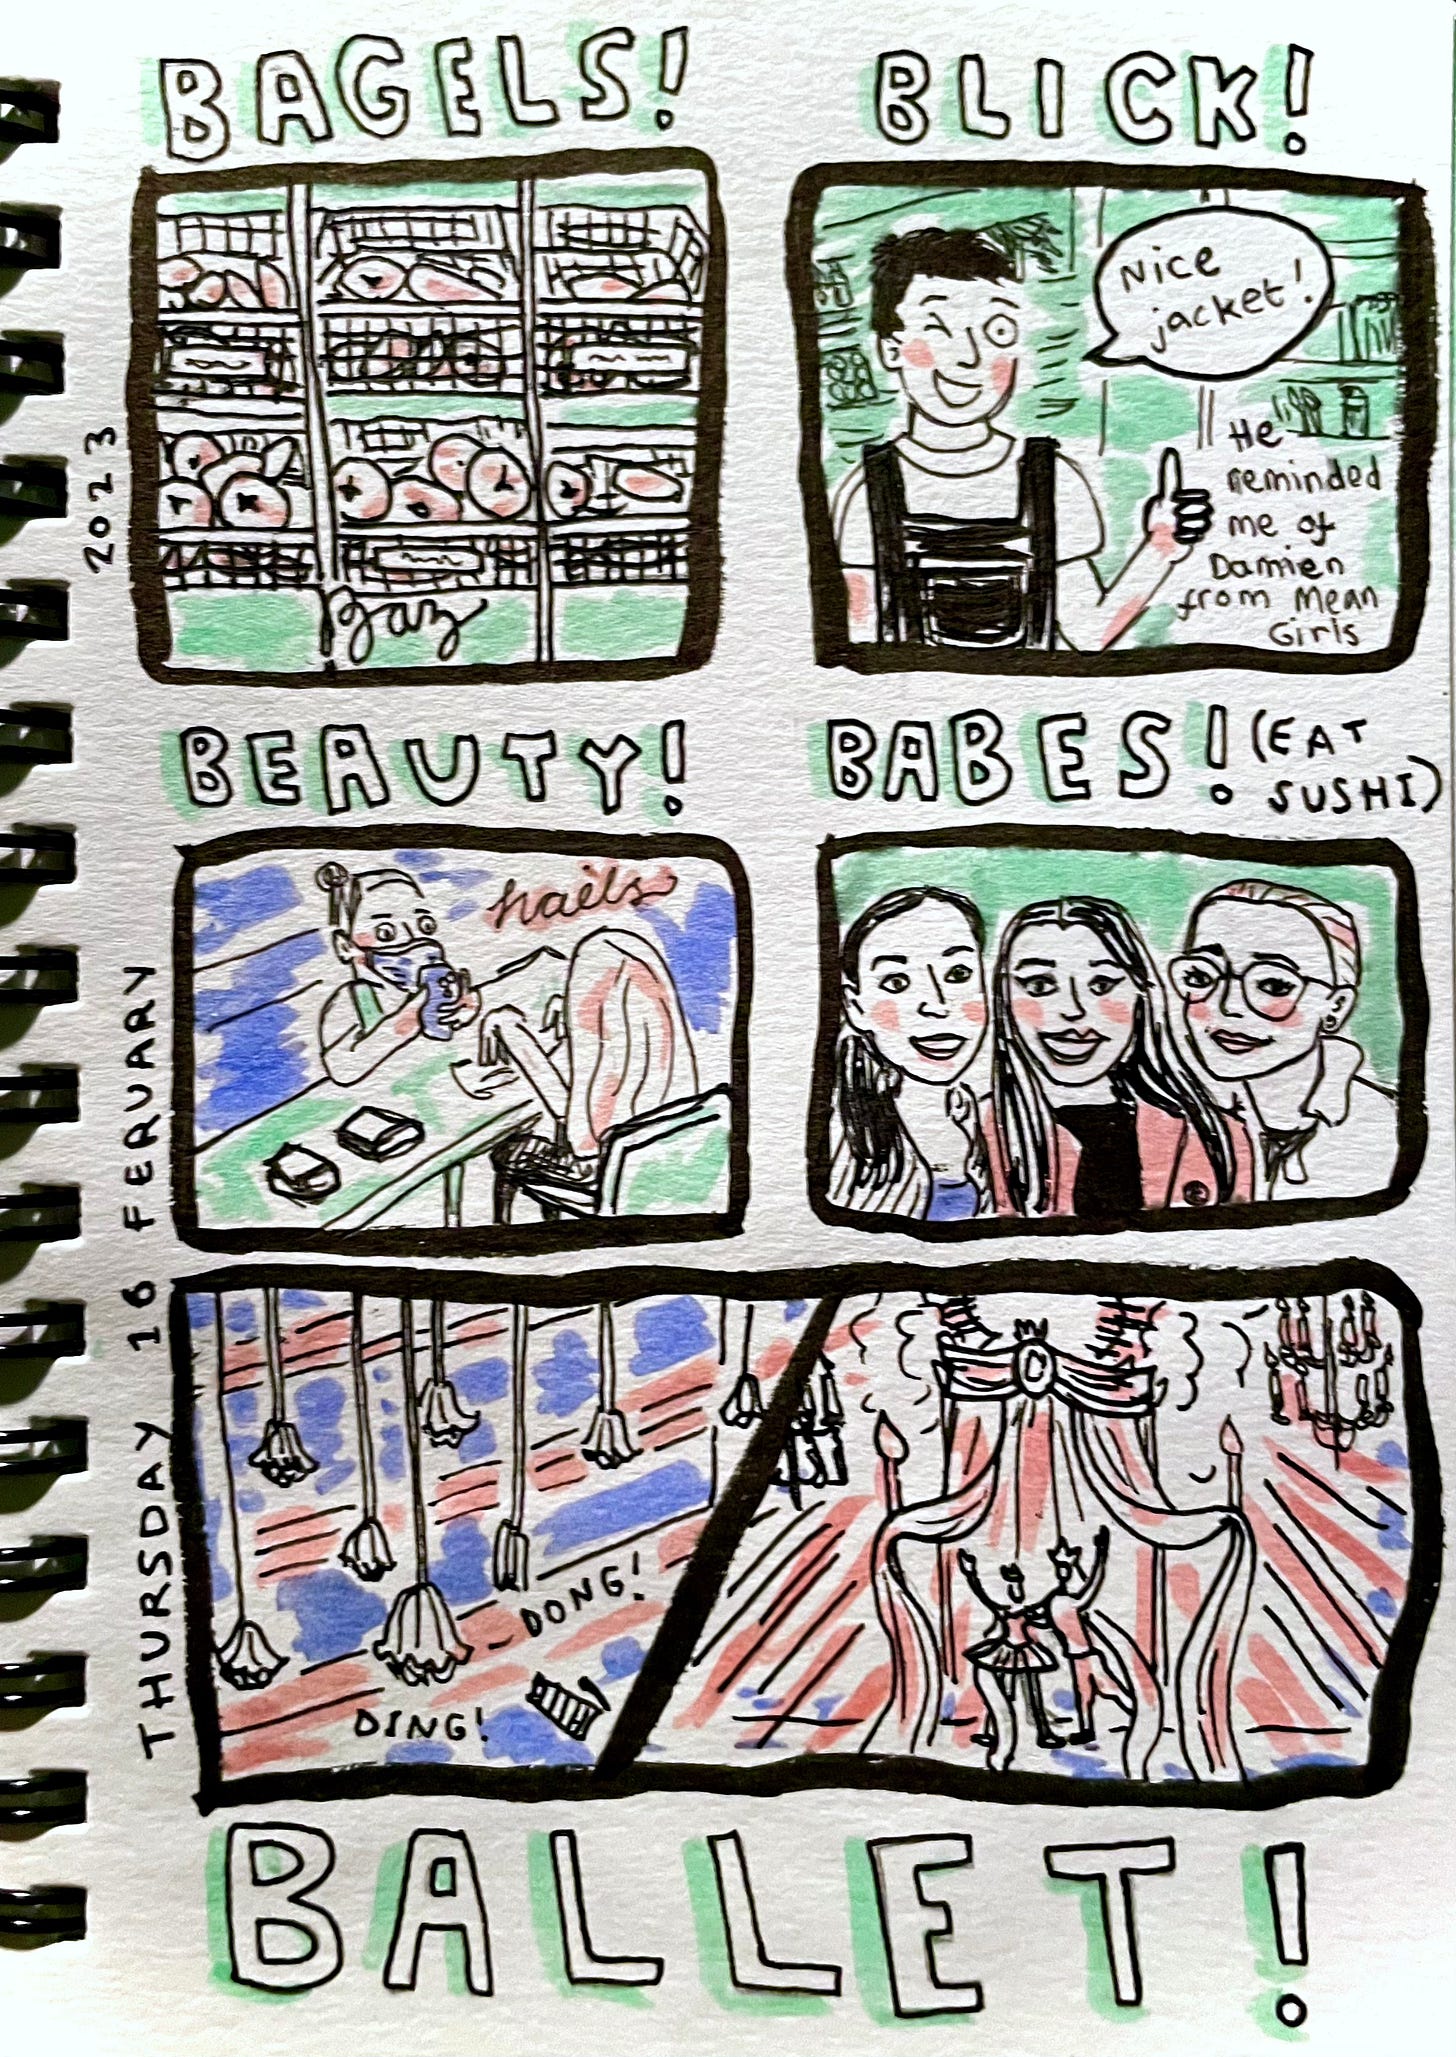 BAGELS!
BLICK!
Nice
jacket!
He
reminded
me of
Damien
from Mean
Girls
BEAUTY!
nails
BABES! (EAT
SUSHI)
DING!
DONG!
C
BALLET!
THURSDAY 16 FERUARY 2023